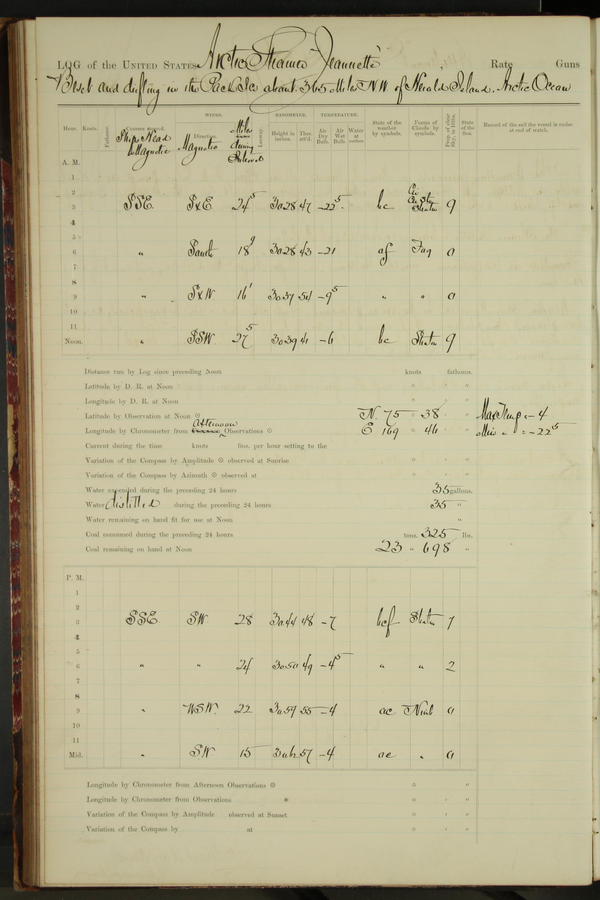 LOG of the UNITED STATES Arctic Steamer Jeannette, Rate Guns
Beset and drifting in the Pack Ice about 365 Miles N.W. of Herald Island. Arctic Ocean
WINDS. BAROMETER. TEMPERATURE.
Hour. Knots. Fathoms. Courses steered. Ship's Head Magnetic Direction. Magnetic Miles during Interval Leeway. Height in inches. Ther. att'd. Air Dry Bulb. Air Wet Bulb. Water at surface. State of the weather by symbols. Forms of Clouds by symbols. Prop. of clear Sky, in 10ths. State of the Sea. Record of the sail the vessel is under at end of watch.
A. M.
1
2
3 SSE S x E 24 5 30 28 47 -22 5 bc Ci Ci St Stratus 9
4
5
6 " South 18 9 30 28 43 -21 of Fog 0
7
8
9 " S x W 16 1 30 37 54 -9 5 " " 0
10
11
Noon. " SSW 27 5 30 39 41 -6 bc Stratus 9
Distance run by Log since preceding Noon knots fathoms.
Latitude by D. R. at Noon ° ′ ″
Longitude by D. R. at Noon ° ′ ″
Latitude by Observation at Noon ☉ N. 75 38 Max Temp = -4
Longitude by Chronometer from Afternoon Observations ☉ E 169 46 Min " = -22 5
Current during the time knots fms. per hour setting to the
Variation of the Compass by Amplitude ☉ observed at Sunrise ° ′ ″
Variation of the Compass by Azimuth ☉ observed at ° ′ ″
Water expended during the preceding 24 hours 35 gallons.
Water distilled during the preceding 24 hours 35 "
Water remaining on hand fit for use at Noon "
Coal consumed during the preceding 24 hours tons. 325 lbs.
Coal remaining on hand at Noon 23 " 698 "
P. M.
1
2
3 SSE SW 28 30 44 48 -7 bcf Stratus 7
4
5
6 " " 24 30 50 49 -4 5 " " 2
7
8
9 " WSW. 22 30 59 55 -4 oc Nimb 0
10
11
Mid. " SW 15 30 62 57 -4 oc " 0
Longitude by Chronometer from Afternoon Observations ☉ ° ′ ″
Longitude by Chronometer from Observations * ° ′ ″
Variation of the Compass by Amplitude observed at Sunset ° ′ ″
Variation of the Compass by at ° ′ ″